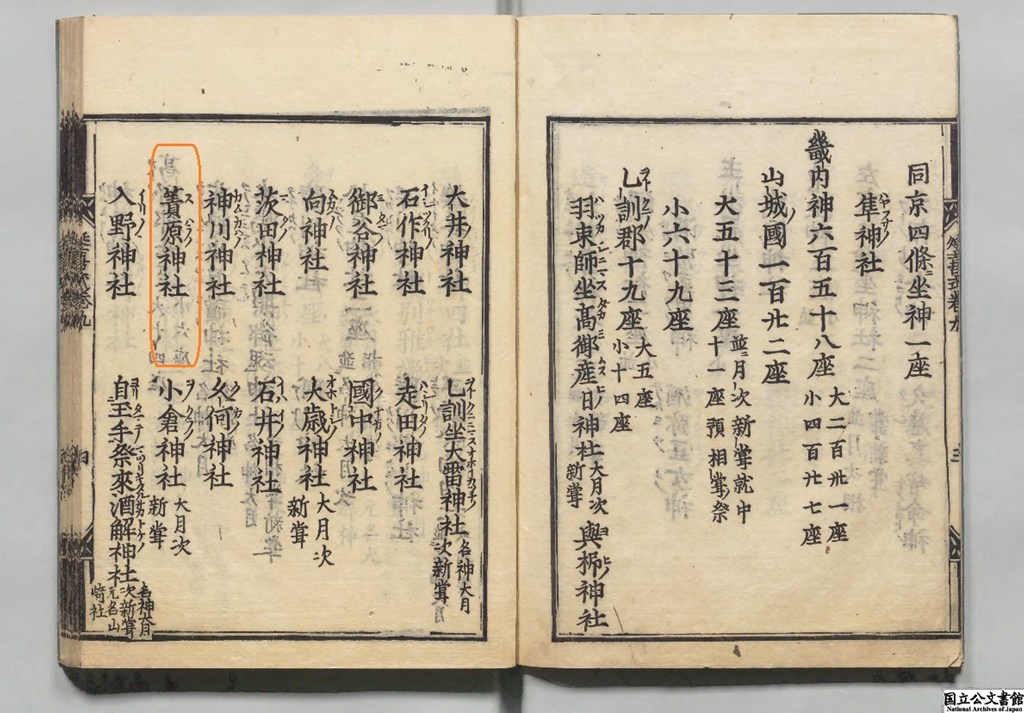 同京四條坐神一座
隼神社
畿内神六百五十八座 大二百卅一座 小四百廿七座
山城國一百廿二座
大五十三座 並月次新甞就中十一座預相甞祭
小六十九座
乙訓郡十九座 大五座 小十四座
羽束師坐高御産日神社 大月次新甞 與杼神社
大井神社 乙訓坐大雷神社 名神大月次新甞
石作神社 走田神社
御谷神社 國中神社
向神社 大歳神社 大月次新甞
茨田神社 石井神社
神川神社 久何神社
簀原神社 小倉神社 大月次新甞
入野神社 自玉手祭來酒解神社 名神大月次新甞元名山崎社
国立公文書館
National Archives of Japan